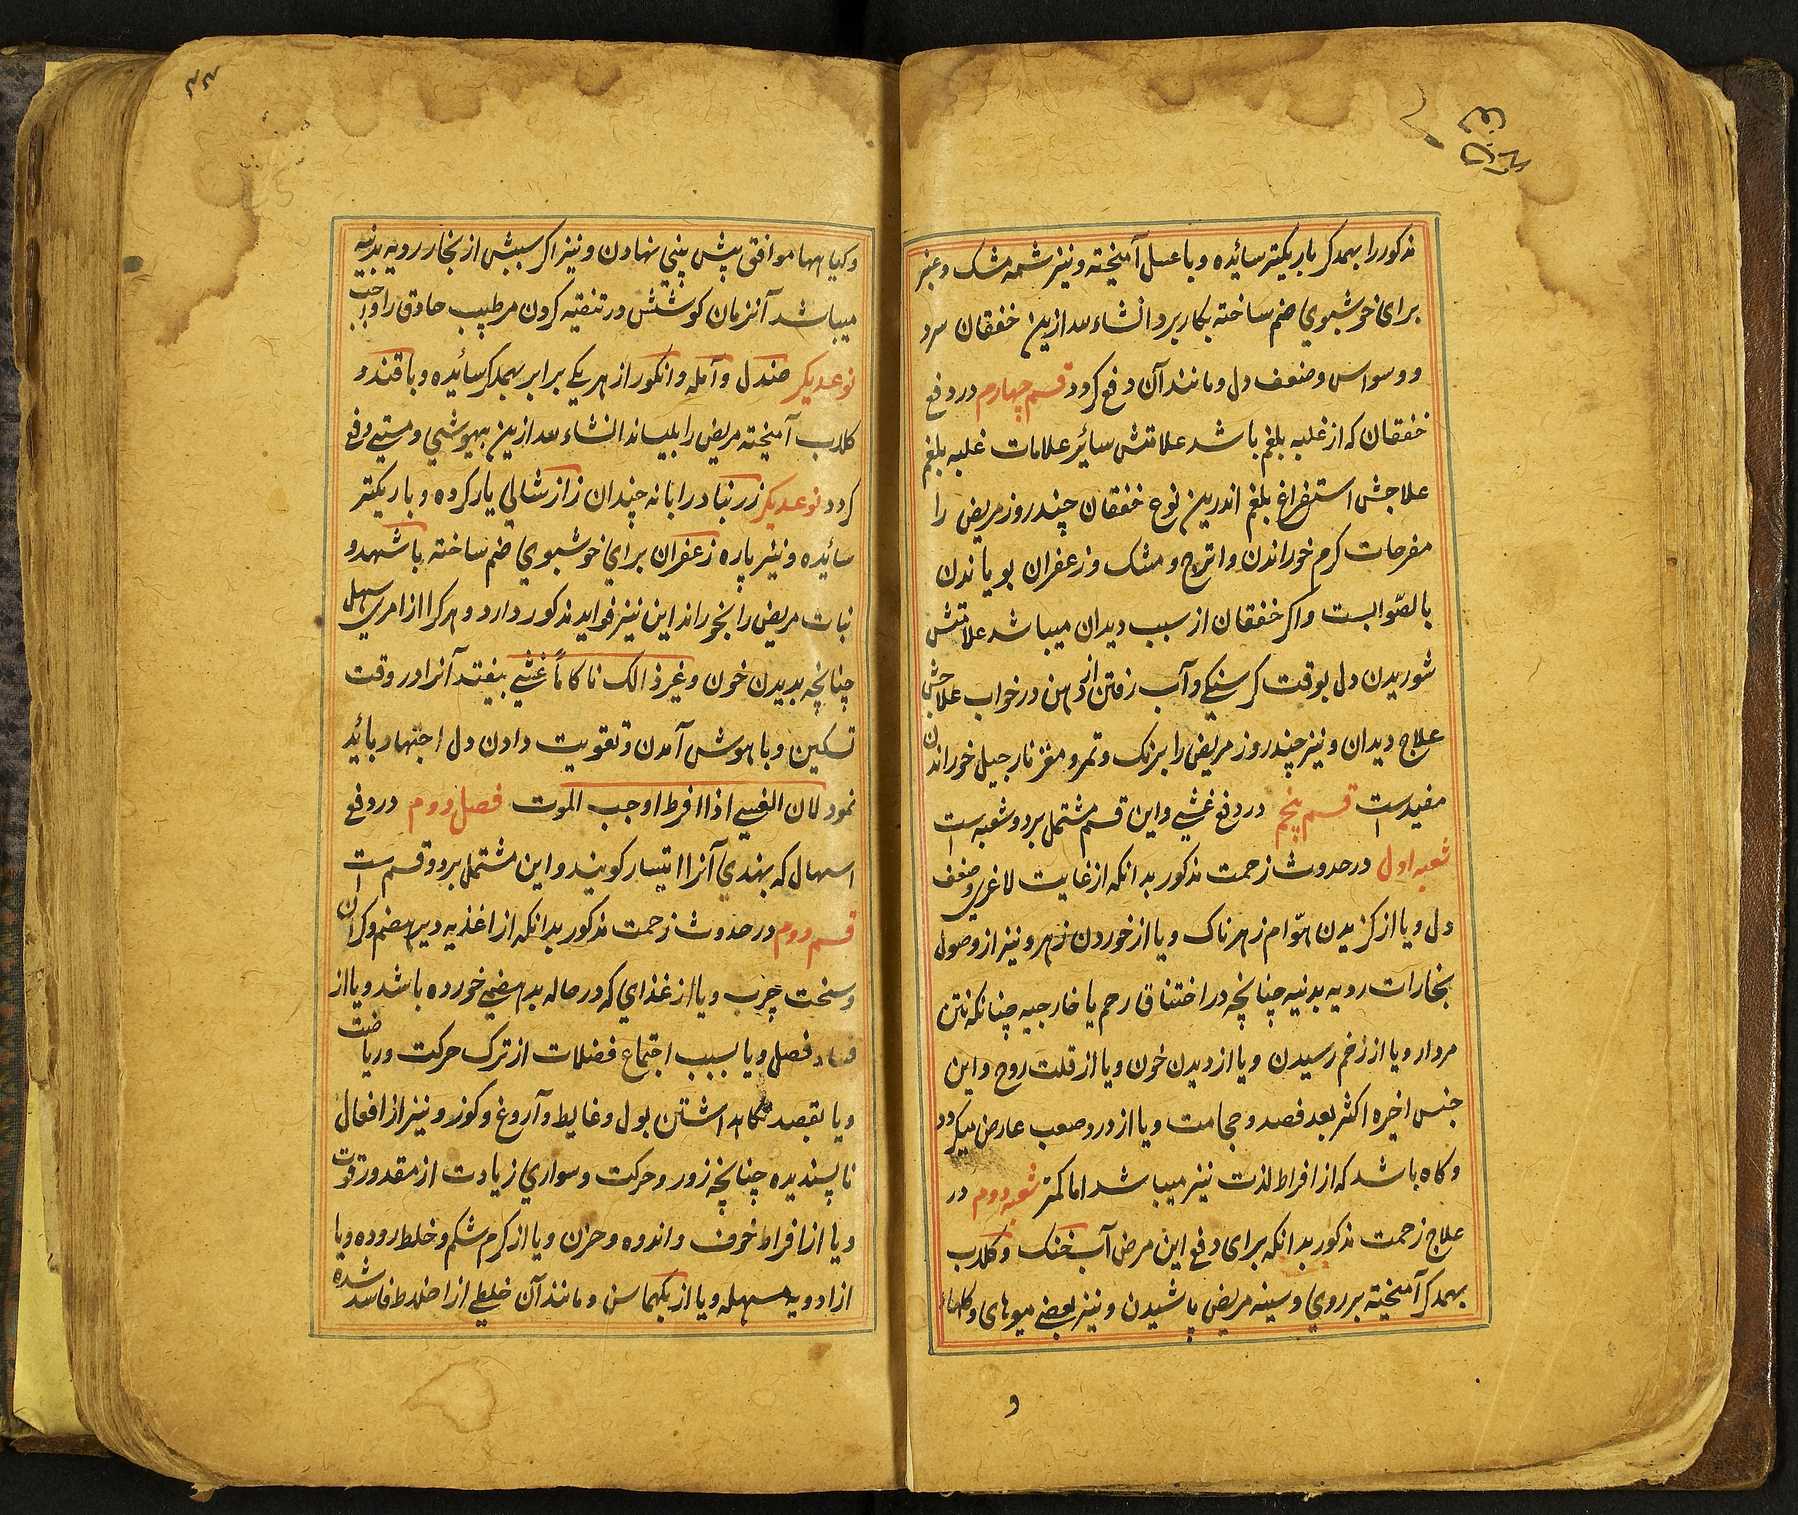 مذکور را بهمدکر باریکتر سائیده و با عسل آمیخته و نیز شمه مشک و عنبر
برای خوشبوی ضم ساخته بکار برد انشاء الله ازین خفقان سرد
و وسواس و ضعف دل و مانند آن دفع کردد قسم چهارم در دفع
خفقان که از غلبه بلغم باشد علامتش سائیر علامات غلبه بلغم
علاجش استفراغ بلغم اندرین نوع خفقان چند روز مریض را
مفرحات کرم خوراندن و اترج و مشک و زعفران بویاندن
بالصوابست و اکر خفقان از سبب دیدان میباشد علامتش
شوریدن دل بوقت کرسنکی و آب رفتن از دهن در خواب علاجش
علاج دیدان و نیز چند روز مریض را برنک و تمر و مغز نارجیل خوراندن
مفیدست قسم پنجم در دفع غشی و این قسم مشتمل بر دو شعبه است
شعبه اول در حدوث زحمت مذکور بدانکه از غایت لاغری و ضعف
دل و یا از کزیدن هوّام زهرناک و یا از خوردن زهر و نیز از وصول
بخارات رویه بدنیه چنانچه در اختناق رحم یا خارجیه چنانکه نتن
مردار و یا از زخم رسیدن و یا از دیدن خون و یا از قلت روح و این
جنس اخیره اکثر بعد فصد و حجامت و یا از درد صعب عارض میکردد
و کاه باشد که از افراط لذت نیز میباشد اما کمتر شعبه دوم در
علاج زحمت مذکور بدانکه برای دفع این مرض آب خنک و کلاب
بهمدکر آمیخته بر روی و سینه مریض پاشیدن و نیز بعضی میوهای و کلهاء
و
۴۴
و کیاهها موافق پیش بینی نهادن و نیز اکر سببش از بخار رویه بدنیه
میباشد آنزمان کوشش در تنقیه کردن مر طبیب حاذق را واجب
نوعدیکر صندل و آمله و انکور از هر یکی برابر بهمدکر سائیده و با قند و
کلاب آمیخته مریض را بلیساند انشاء الله ازین بیهوشی و مستی دفع
کردد نوعدیکر زرنباد را با نه چندان زاز شالی یار کرده و باریکتر
سائیده و نیز پاره زعفران برای خوشبوی ضم ساخته با شهد و
نبات مریض را بخوراند این نیز فواید مذکور دارد و هر کرا از امری سهل
چنانچه بدیدن خون و غیر ذالک ناکاماً غشی بیفتد آنرا در وقت
تسکین و با هوش آمدن و تقویت دادن دل اجتهاد بائید
نمود لان الغسی اذا افرط اوجب الموت فصل دوم در دفع
اسهال که بهندی آنرا اتیسار کویند و این مشتمل بر دو قسم است
قسم دوم در حدوث زحمت مذکور بدانکه از اغذیه دیر هضم و کران
و سخت چرب و یا از غذای که در حاله بد هضمی خورده باشد و یا از
فساد فصل و یا بسبب اجتماع فضلات از ترک حرکت و ریاضت
و یا بقصد نکاهداشتن بول و غایط و آروغ و کوز و نیز از افعال
ناپسندیده چنانچه زور و حرکت و سواری زیادت از مقدور قوت
و یا از افراط خوف و اندوه و حزن و یا از کرم شکم و خلط روده و یا
از ادویه مسهله و یا از بکهماسن و مانند آن خلطی از اخلاط فاسد شده